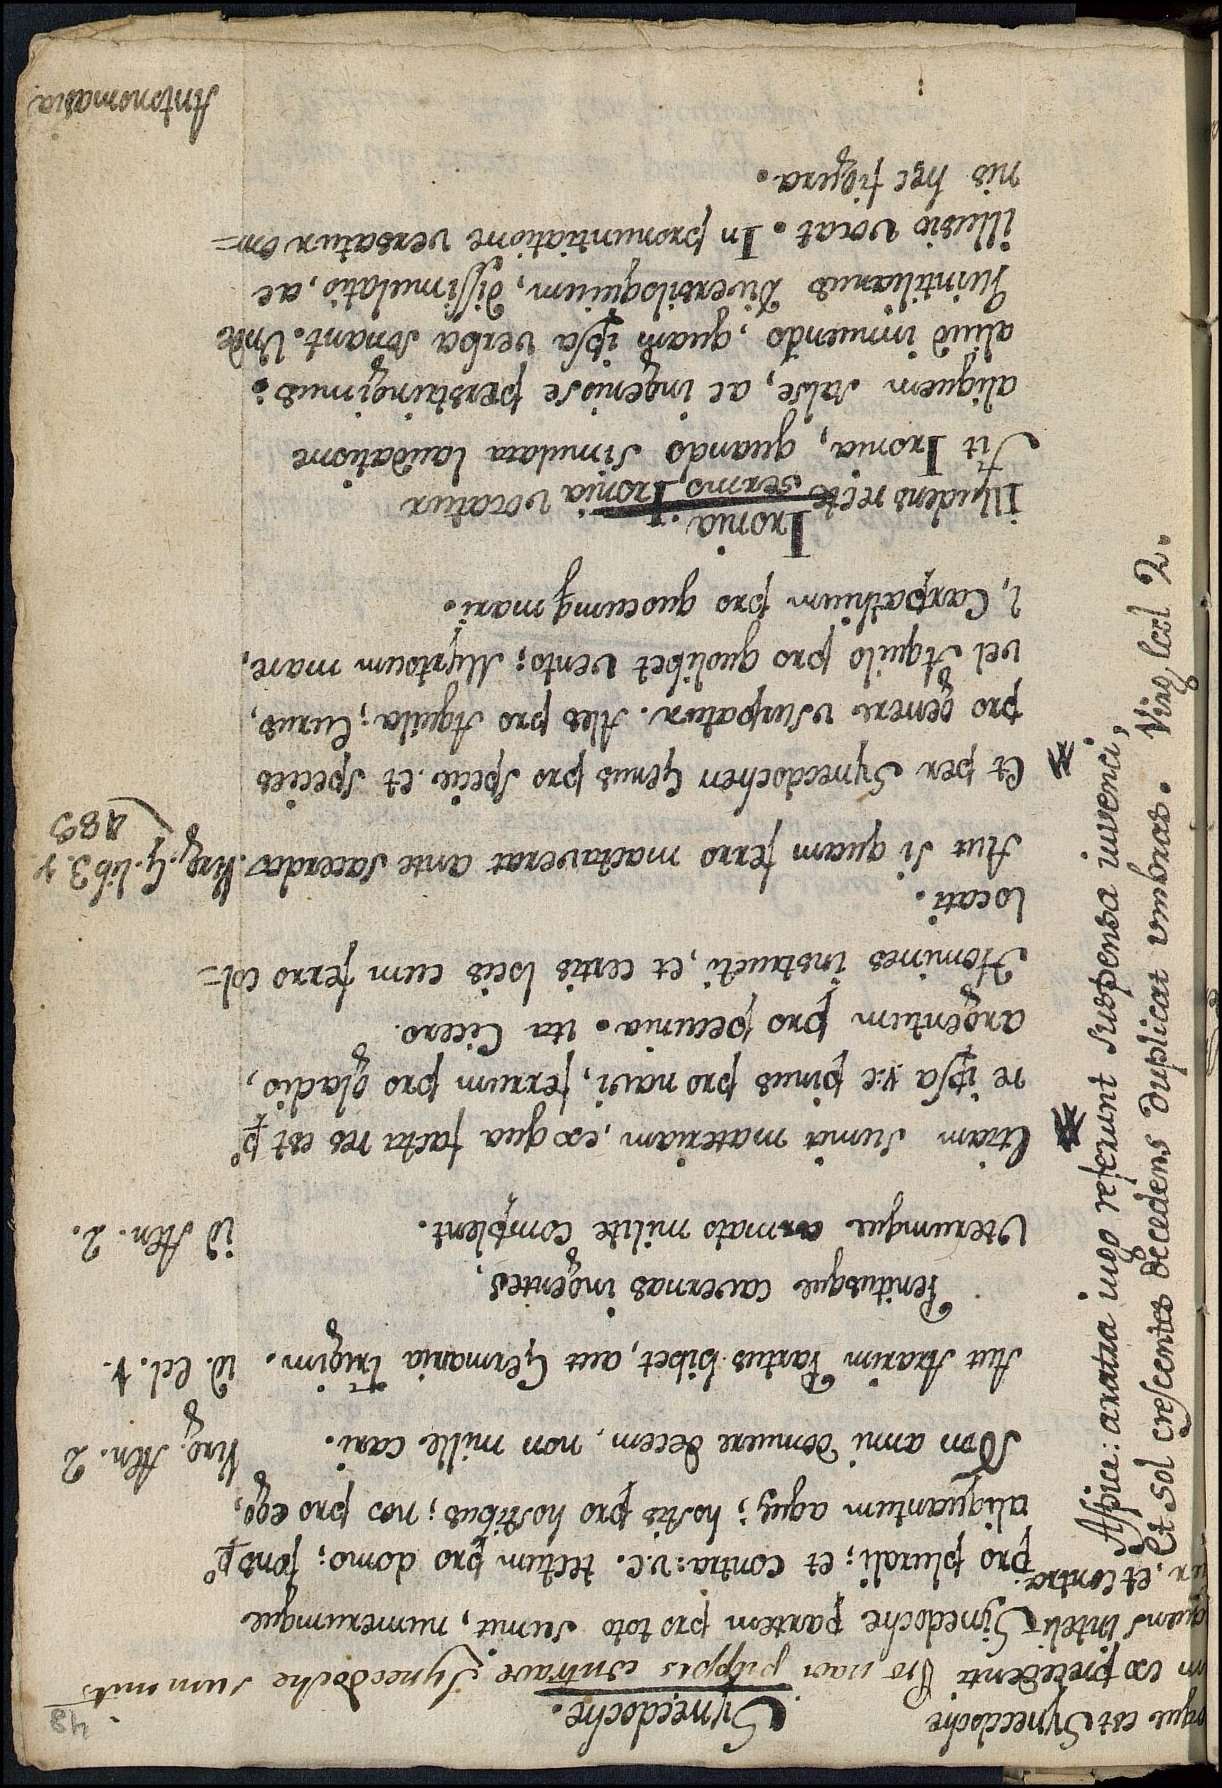 48
Synecdoche.
Pro navi puppis contrave Synecdoche sumunt
Sinedoche partem pro toto sumit, numerumque
pro plurali; et contra: v.c. tectum pro domo; fons p°
aliquantum aquę; hostis pro hostibus; nos pro ego,
Non anni domuere decem, non mille cari. Virg. Æn. 2
Aut Ararim Partus bibet, aut Germania Trigim. id. Ecl. 1.
Penitusque cavernas ingentes,
Uterumque armato milite complent. id Æn. 2.
Etiam sumit materiam, ex qua facta res est p°
re ipsa v:c pinus pro navi, ferrum pro gladio,
argentum pro pecunia. ita Cicero.
Homines instructi, et certis locis cum ferro col=
locati.
Aut si quam ferro mactaverat ante sacerdos Virg. G. lib 3. v
489
Et per Synecdochen Genus pro specie. et species
pro genere usurpatur. Ales pro Aquila; Eurus,
vel Aquilo pro quolibet vento; Myrtoum mare,
l, Carpathium pro quocumq mari.
Ironia.
Illudens recte sermo, Ironia vocatur
Fit Ironia, quando simulata laudatione
aliquem salse, ac ingeniose perstringimus:
aliud innuendo, quam ipsa verba sonant. Unde
Quintilianus diversiloquium, dissimulatio, ac
illusio vocat. In pronuntiatione versatur om=
nis hęc figura.
Antonomasia
que est Synecdoche
ex precedenti
quens inteli
ur, et contra.
Aspice: aratra iugo referunt suspensa iuvenci,
Et sol crescentes decedens duplicat umbras. Virg. Ecol 2.